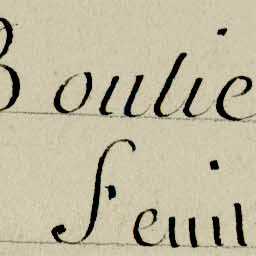 Boulie
Feuil